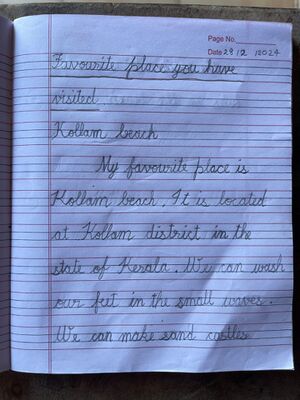 Page No.
Date 28 12 2024
Favourite place you have
visited
Kollam beach
My favourite place is
Kollam beach. It is located
at Kollam district in the
state of Kerala. We can wash
our feet in the small waves.
We can make sand castles